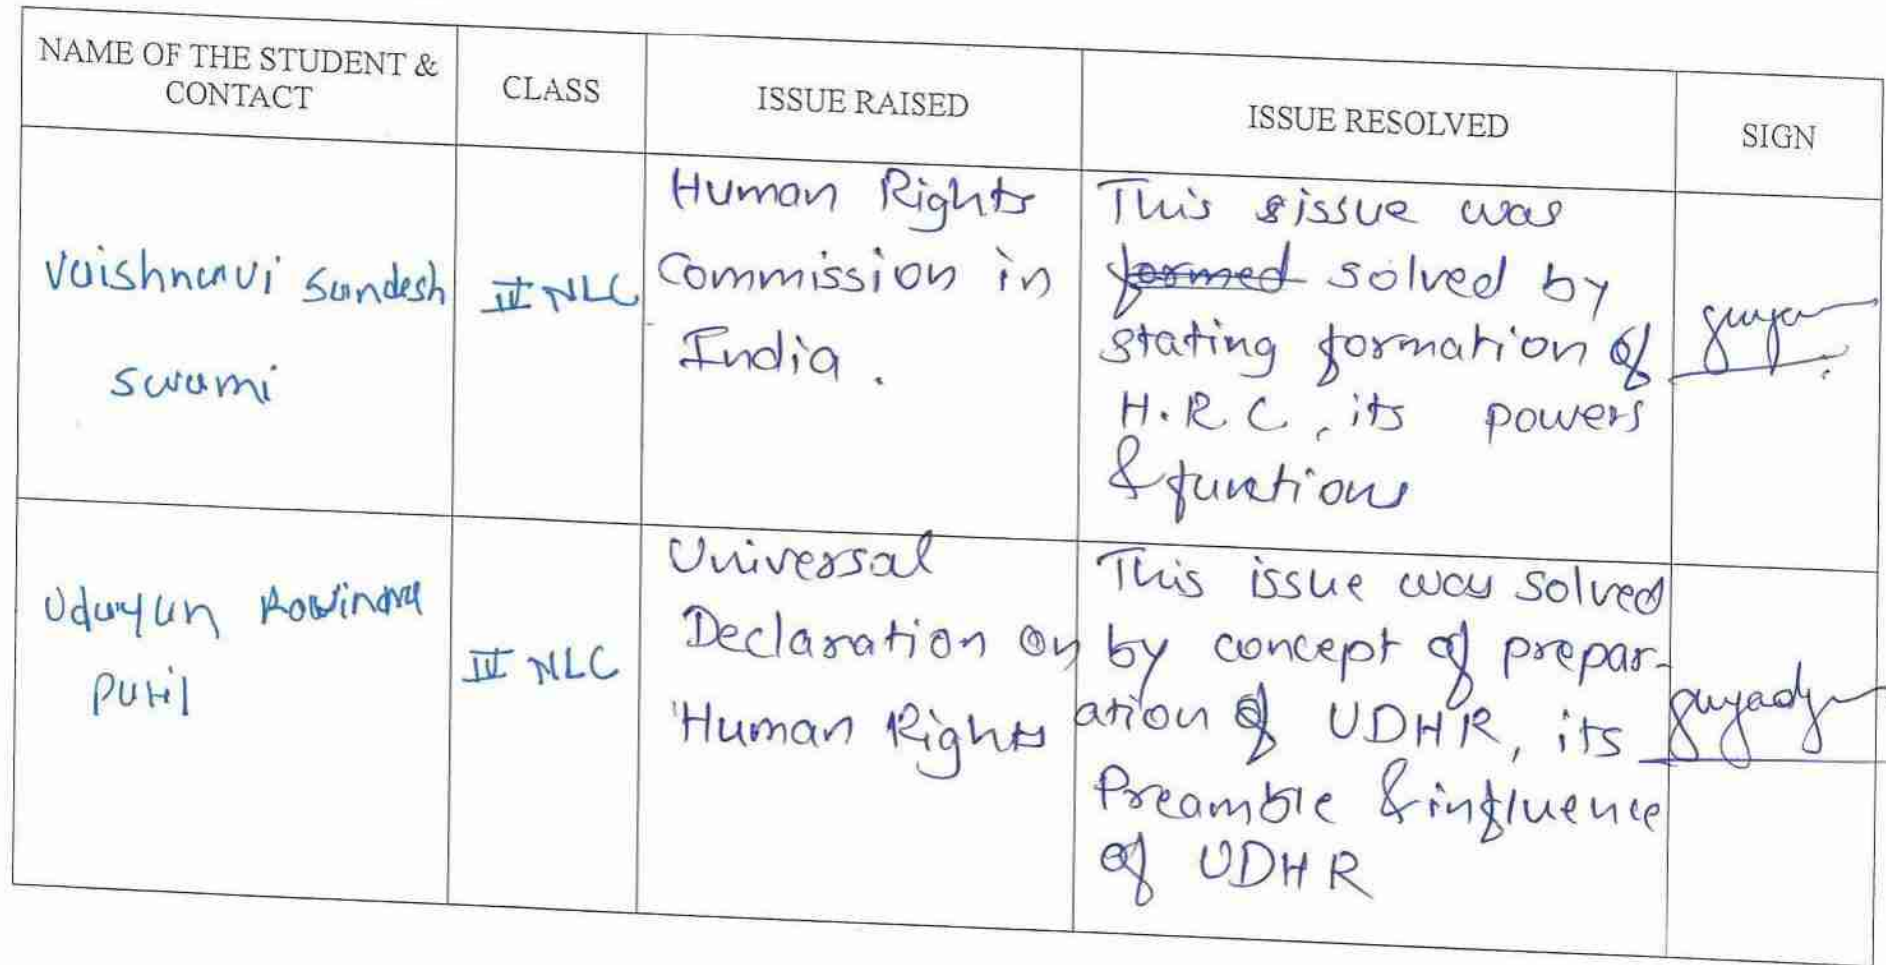 NAME OF THE STUDENT &
CONTACT
CLASS
ISSUE RAISED
ISSUE RESOLVED
SIGN
Vaishnavi Sandesh
Swami
IV NLC
Human Rights
Commission in
India.
This issue was
formed solved by
stating formation of
H.R.C, its powers
& functions
Udayan Ravindra
Patil
IV NLC
Universal
Declaration on
Human Rights
This issue was solved
by concept of prepar-
ation of UDHR, its
Preamble & influence
of UDHR